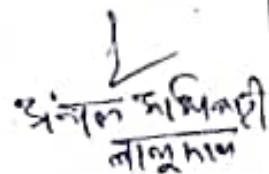 अंचल अधिकारी
लालगंज